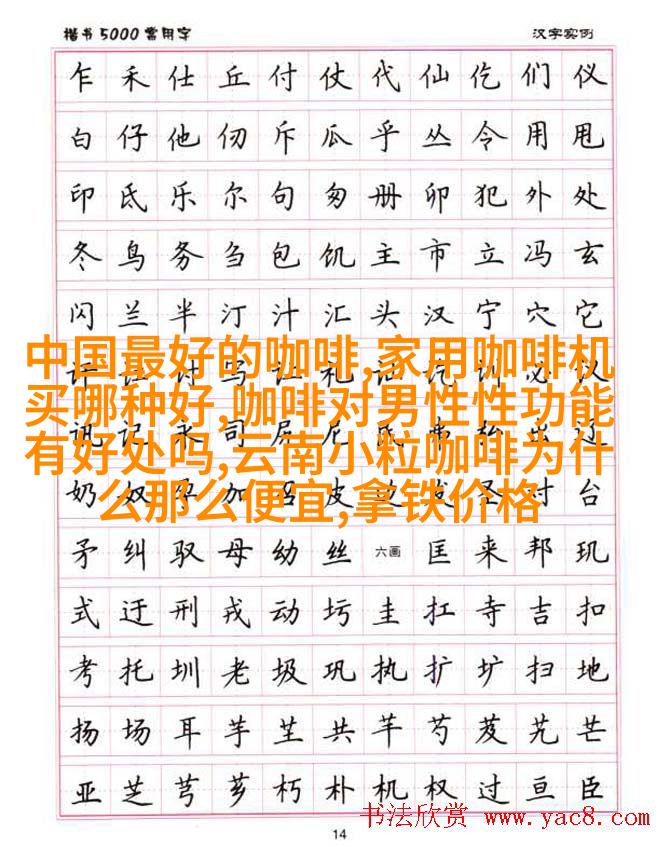 楷书5000常用字 汉字实例
乍 禾 仕 丘 付 仗 代 仙 仡 们 仪
白 仔 他 仞 斥 瓜 乎 丛 令 用 甩
印 氐 乐 尔 句 匆 册 卯 犯 外 处
冬 鸟 务 刍 包 饥 主 市 立 冯 玄
闪 兰 半 汀 汁 汇 头 汉 宁 穴 它
中国最好的咖啡,家用咖啡机
买哪种好,咖啡对男性性功能
有好处吗,云南小粒咖啡为什
么那么便宜,拿铁价格
矛 纠 驭 母 幼 丝 六画 匡 来 邦 玑
式 迂 刑 戎 动 圬 圭 扛 寺 吉 扣
考 托 圳 老 圾 巩 执 扩 圹 扫 地
扬 场 耳 芋 芏 共 芊 芍 芨 艽 芒
亚 芝 芎 芗 朽 朴 机 权 过 亘 臣
书法欣赏 www.yac8.com
14